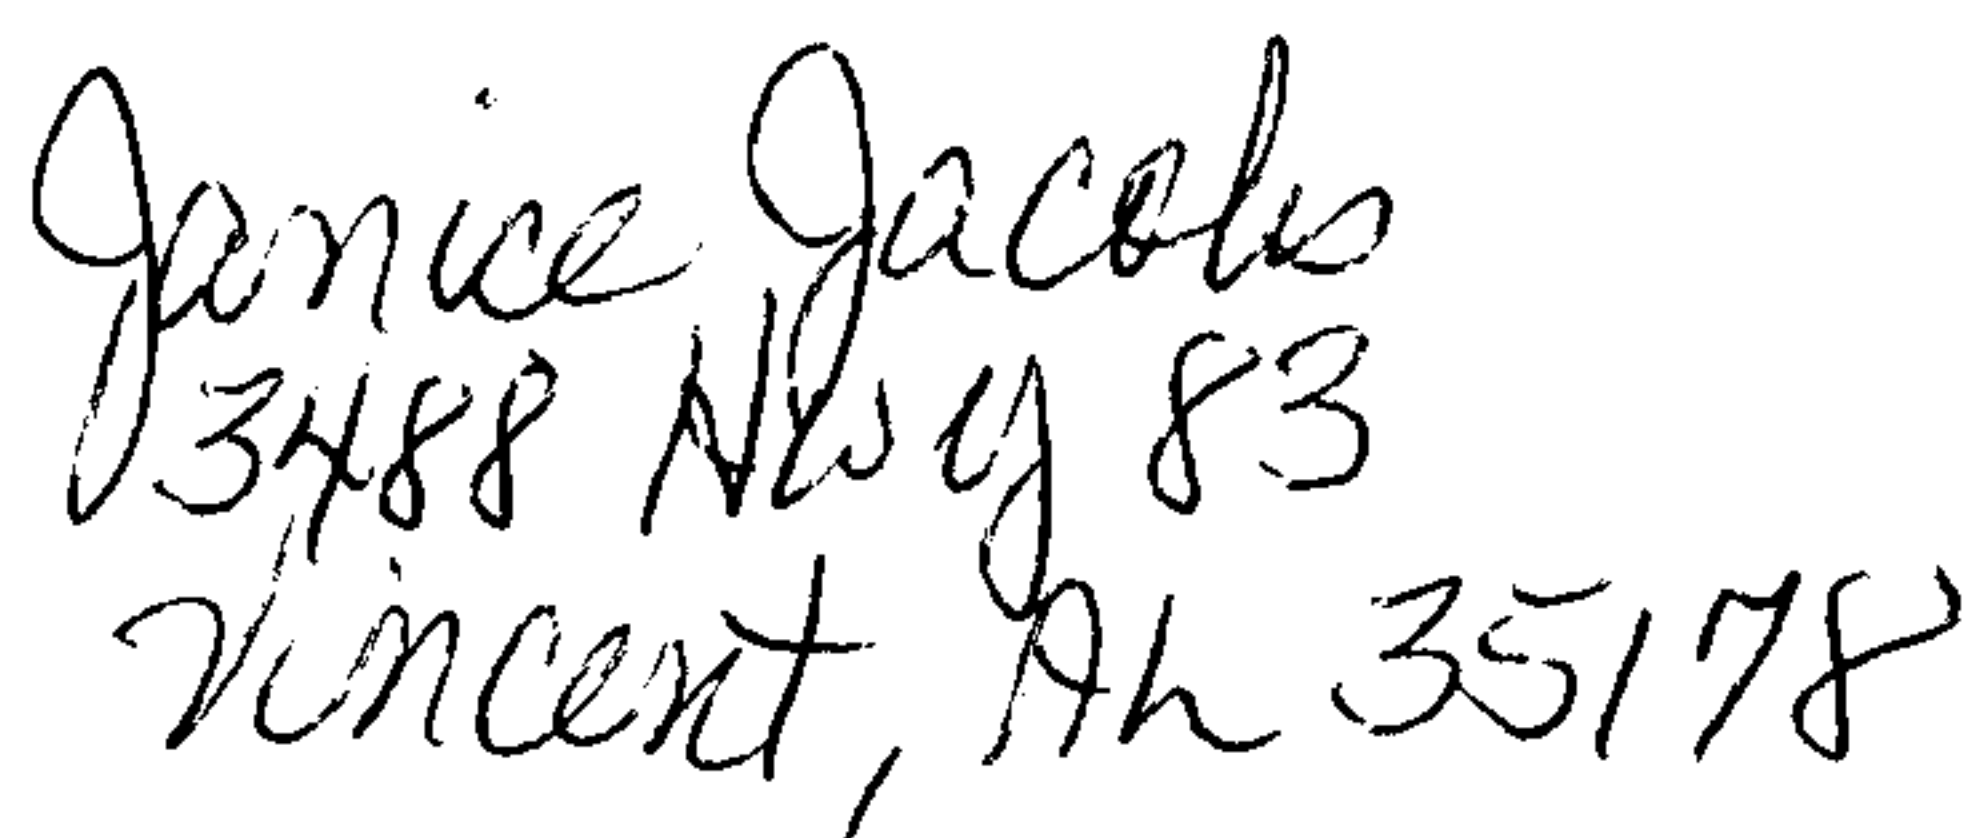 Janice Jacobs
3488 Hwy 83
Vincent, AL 35178